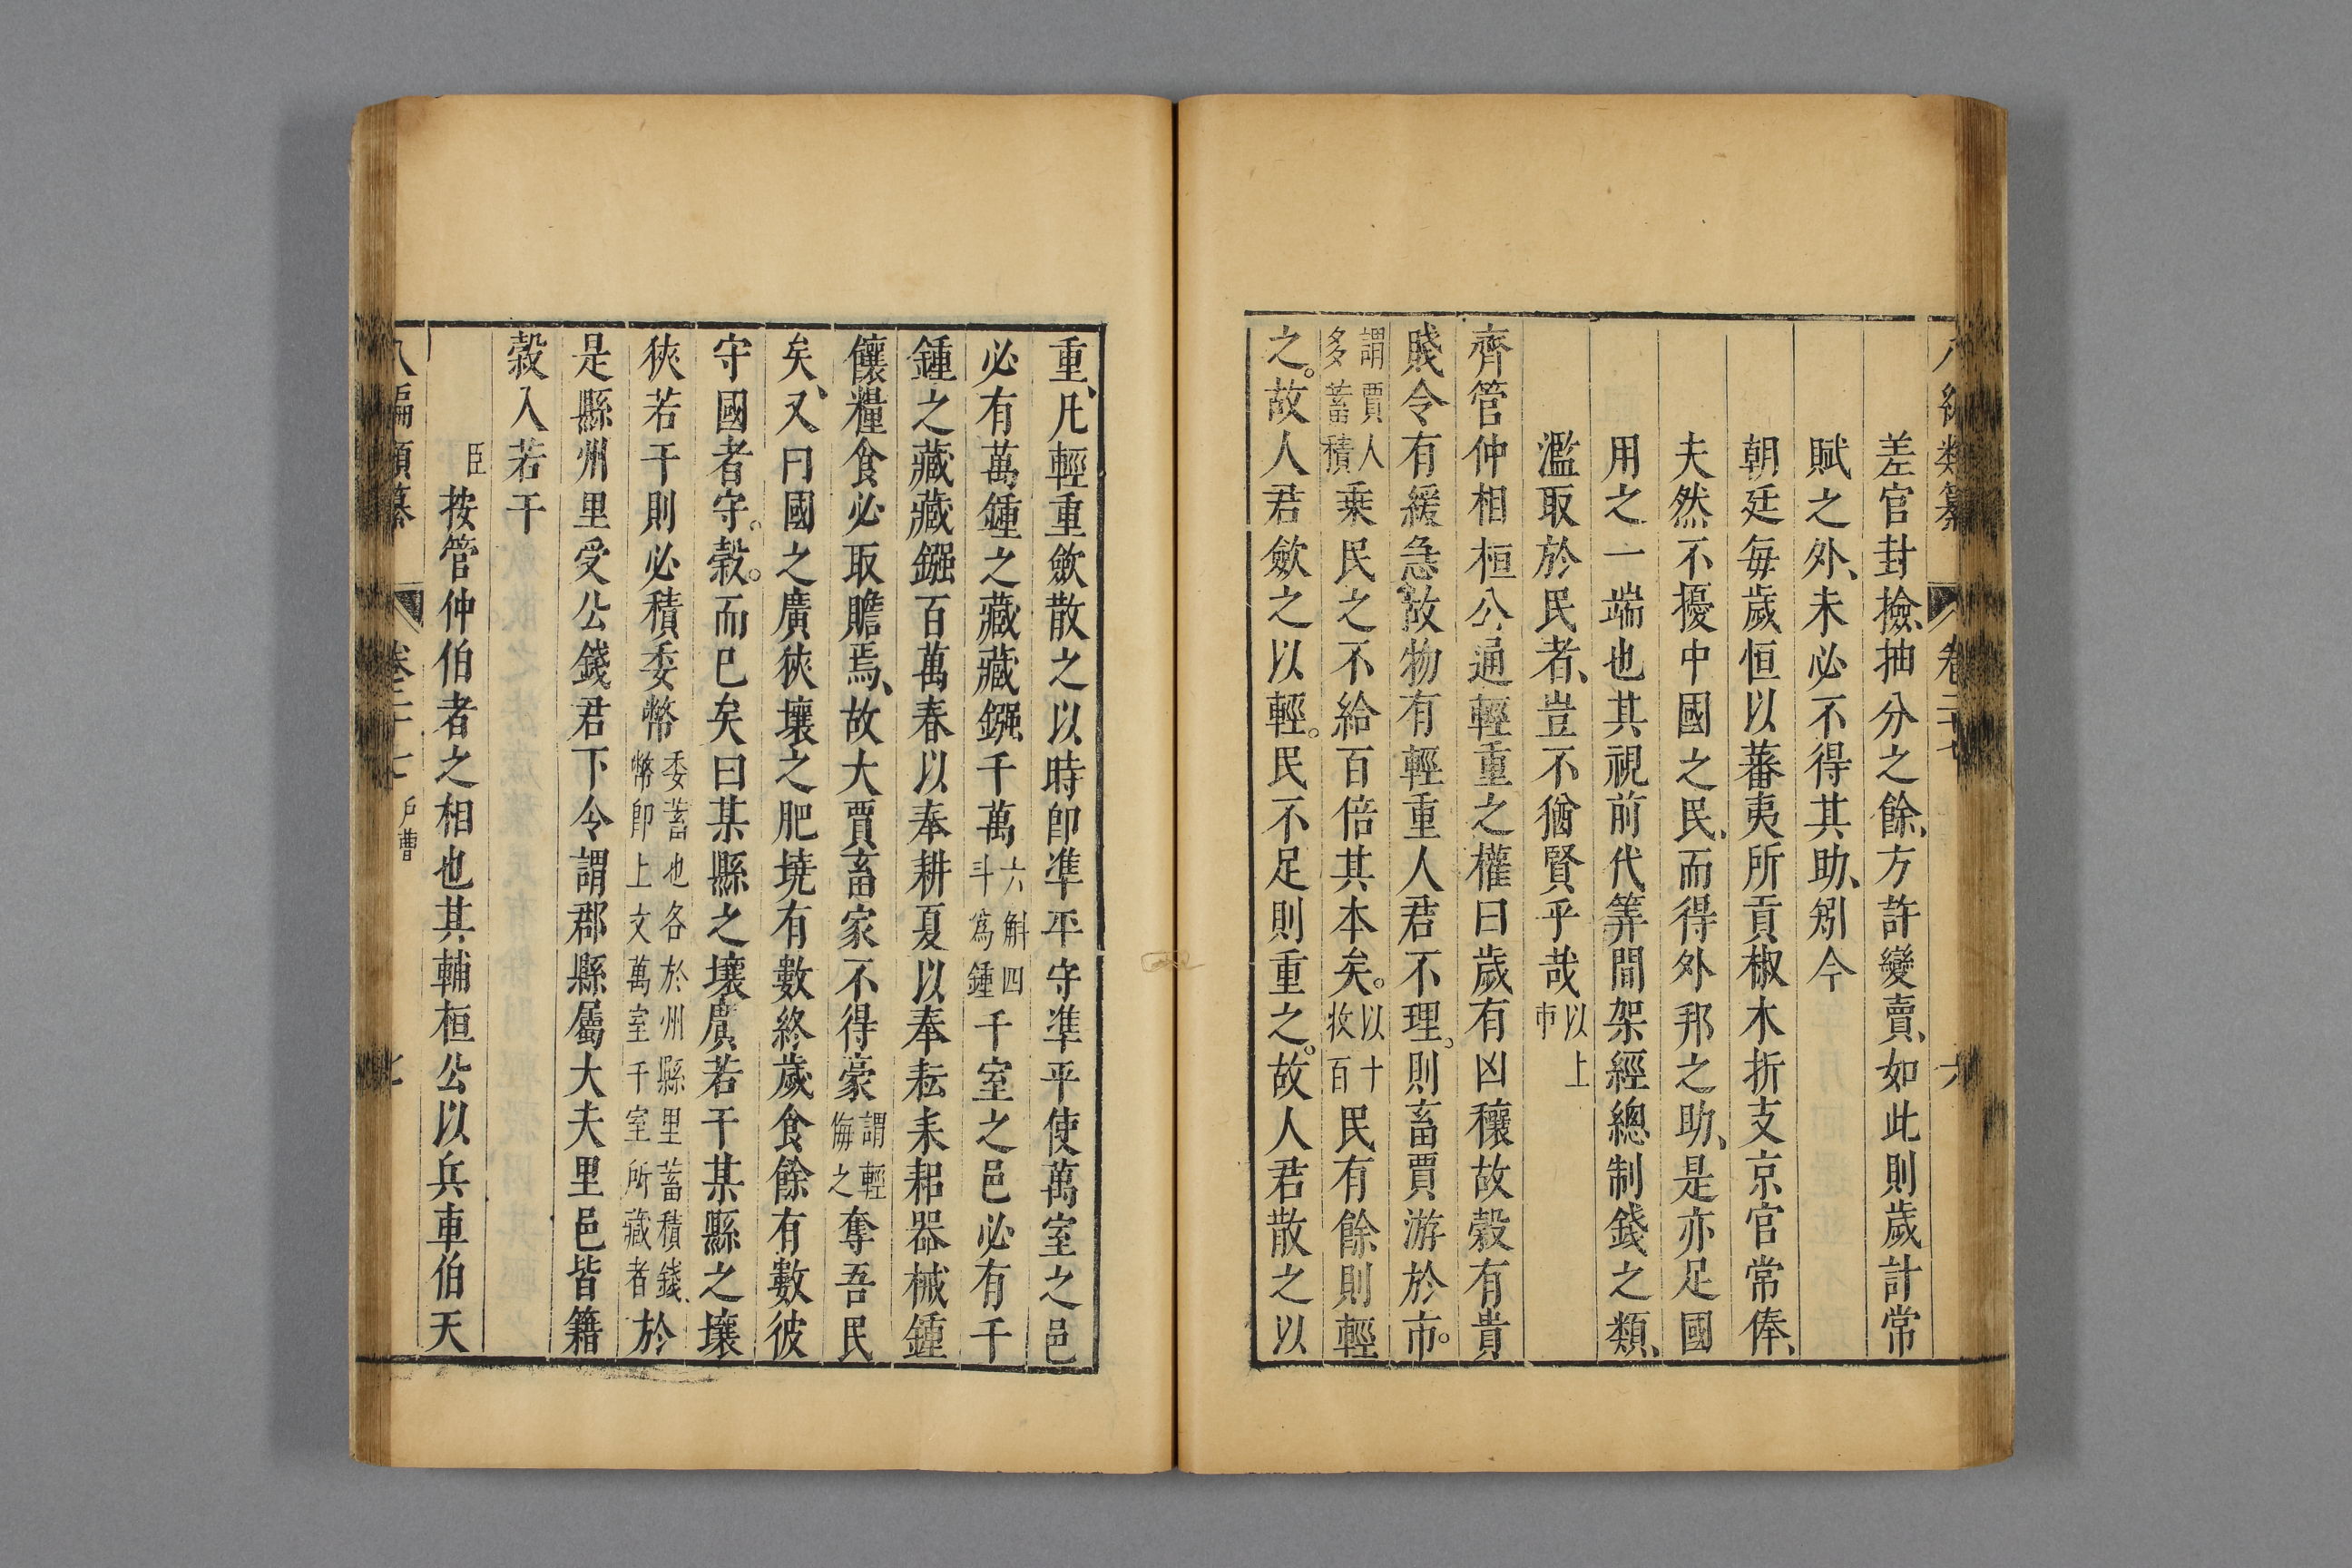 類纂
卷二十七
六
差官封撿、抽分之餘、方許變賣、如此則歲計常
賦之外、未必不得其助、矧今
朝廷每歲恒以蕃夷所貢椒木折支京官常俸、
夫然不擾中國之民、而得外邦之助、是亦足國
用之一端也其視前代筭間架經總制錢之類、
濫取於民者、豈不猶賢乎哉以上市
齊管仲相桓公通輕重之權曰歲有凶穰故穀有貴
賤令有緩急故物有輕重人君不理。則畜賈游於市。
謂賈人多蓄積乗民之不給百倍其本矣。以十收百民有餘則輕
之。故人君歛之以輕。民不足則重之。故人君散之以
重、凡輕重歛散之以時卽準平守準平使萬室之邑
必有萬鍾之藏藏鏹千萬六斛四斗爲鍾千室之邑必有千
鍾之藏藏鏹百萬春以奉耕夏以奉耘耒耜器械鍾
饟糧食必取贍焉、故大賈畜家不得豪謂輕侮之奪吾民
矣、又曰國之廣狹壤之肥墝有數終歲食餘有數彼
守國者守。穀。而已矣曰某縣之壤廣若干某縣之壤
狹若干則必積委幣委蓄也各於州縣里蓄積錢、幣卽上文萬室千室所藏者於
是縣州里受公錢君下令謂郡縣屬大夫里邑皆籍
穀入若干
臣按管仲伯者之相也其輔桓公以兵車伯天
八編類纂
卷二十七
戶曹
七